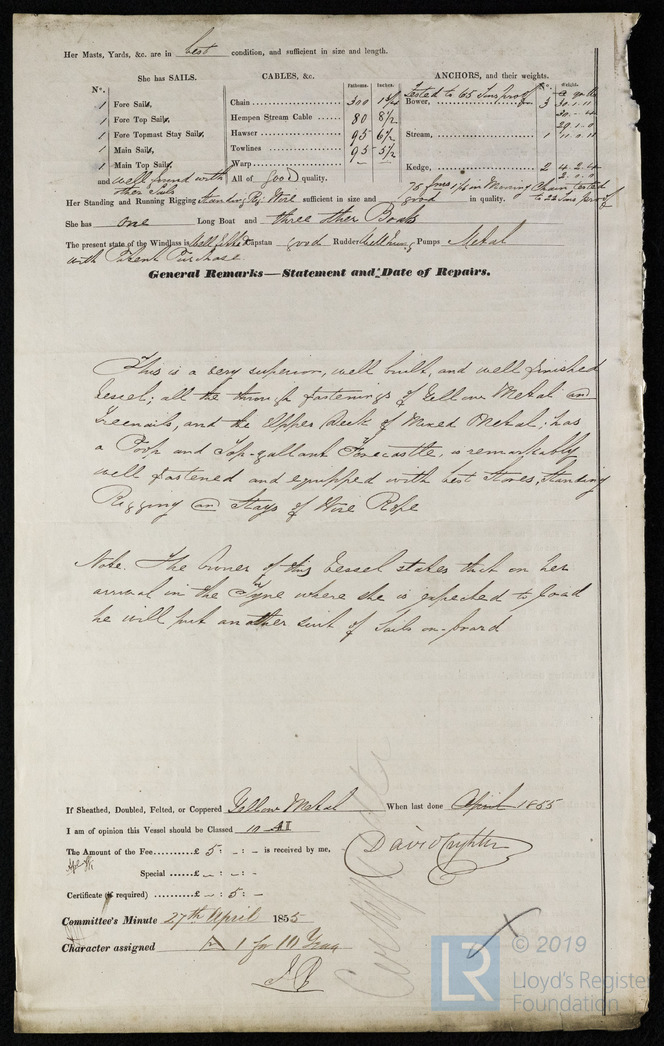 Her Masts, Yards, &c. are in best condition, and sufficient in size and length.
She has SAILS.
CABLES, &c.
ANCHORS, and their weights.
No.
Fathoms.
Inches.
No.
Weight.
1 Fore Sails,
1 Fore Top Sails,
1 Fore Topmast Stay Sails,
1 Main Sails,
1 Main Top Sails,
and well found with
other Sails
Chain 300
Hempen Stream Cable 80 8½
Hawser 95 6½
Towlines 95 5½
Warp
All of good quality.
Tested to 65 Tons proof
Bower, 3 30.1.11
29.1.0
Stream, 1 11.0.11
Kedge, 2 4.2.4
2.0.0
75 fms 1 1/16 in Mooring Chain tested
to 22 Tons proof
Her Standing and Running Rigging Standing Rig Wire sufficient in size and good in quality.
She has one Long Boat and three other Boats
The present state of the Windlass is well fitted Capstan good Rudder Pumps Metal
with Patent Purchase
General Remarks—Statement and Date of Repairs.
This is a very superior, well built, and well finished
Vessel; all the through fastenings of Yellow Metal and
Treenails, and the Upper Deck of Mixed Metal; has
a Poop and Top-gallant Forecastle, is remarkably
well fastened and equipped with best Stores, Standing
Rigging and Stays of Wire Rope
Note. The Owner of this Vessel states that on her
arrival in the Tyne where she is expected to load
he will put another suit of Sails on-board
If Sheathed, Doubled, Felted, or Coppered Yellow Metal When last done April 1855
I am of opinion this Vessel should be Classed 10 A1
The Amount of the Fee.........£ 5 : - : - is received by me,
David Crighton
Special ......£ - : - : -
Certificate (if required) .........£ - : 5 : -
Committee's Minute 27th April 1855
Character assigned A 1 for 10 Years
© 2019
LR
Lloyd's Register
Foundation